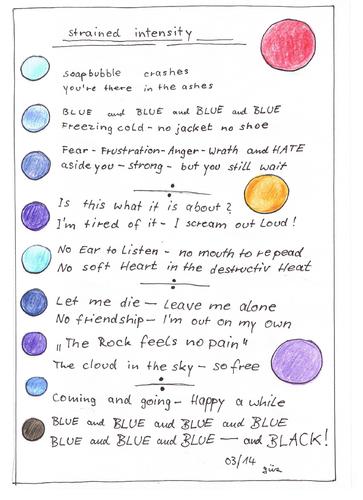 strained intensity
soapbubble crashes
you're there in the ashes
BLUE and BLUE and BLUE and BLUE
Freezing cold - no jacket no shoe
Fear - Frustration - Anger - Wrath and HATE
aside you - strong - but you still wait
Is this what it is about?
I'm tired of it - I scream out Loud!
No Ear to Listen - no mouth to repead
No soft Heart in the destructiv Heat
Let me die - Leave me alone
No friendship - I'm out on my own
„The Rock feels no pain"
The cloud in the sky - so free
Coming and going - Happy a while
BLUE and BLUE and BLUE and BLUE
BLUE and BLUE and BLUE - and BLACK!
03/14